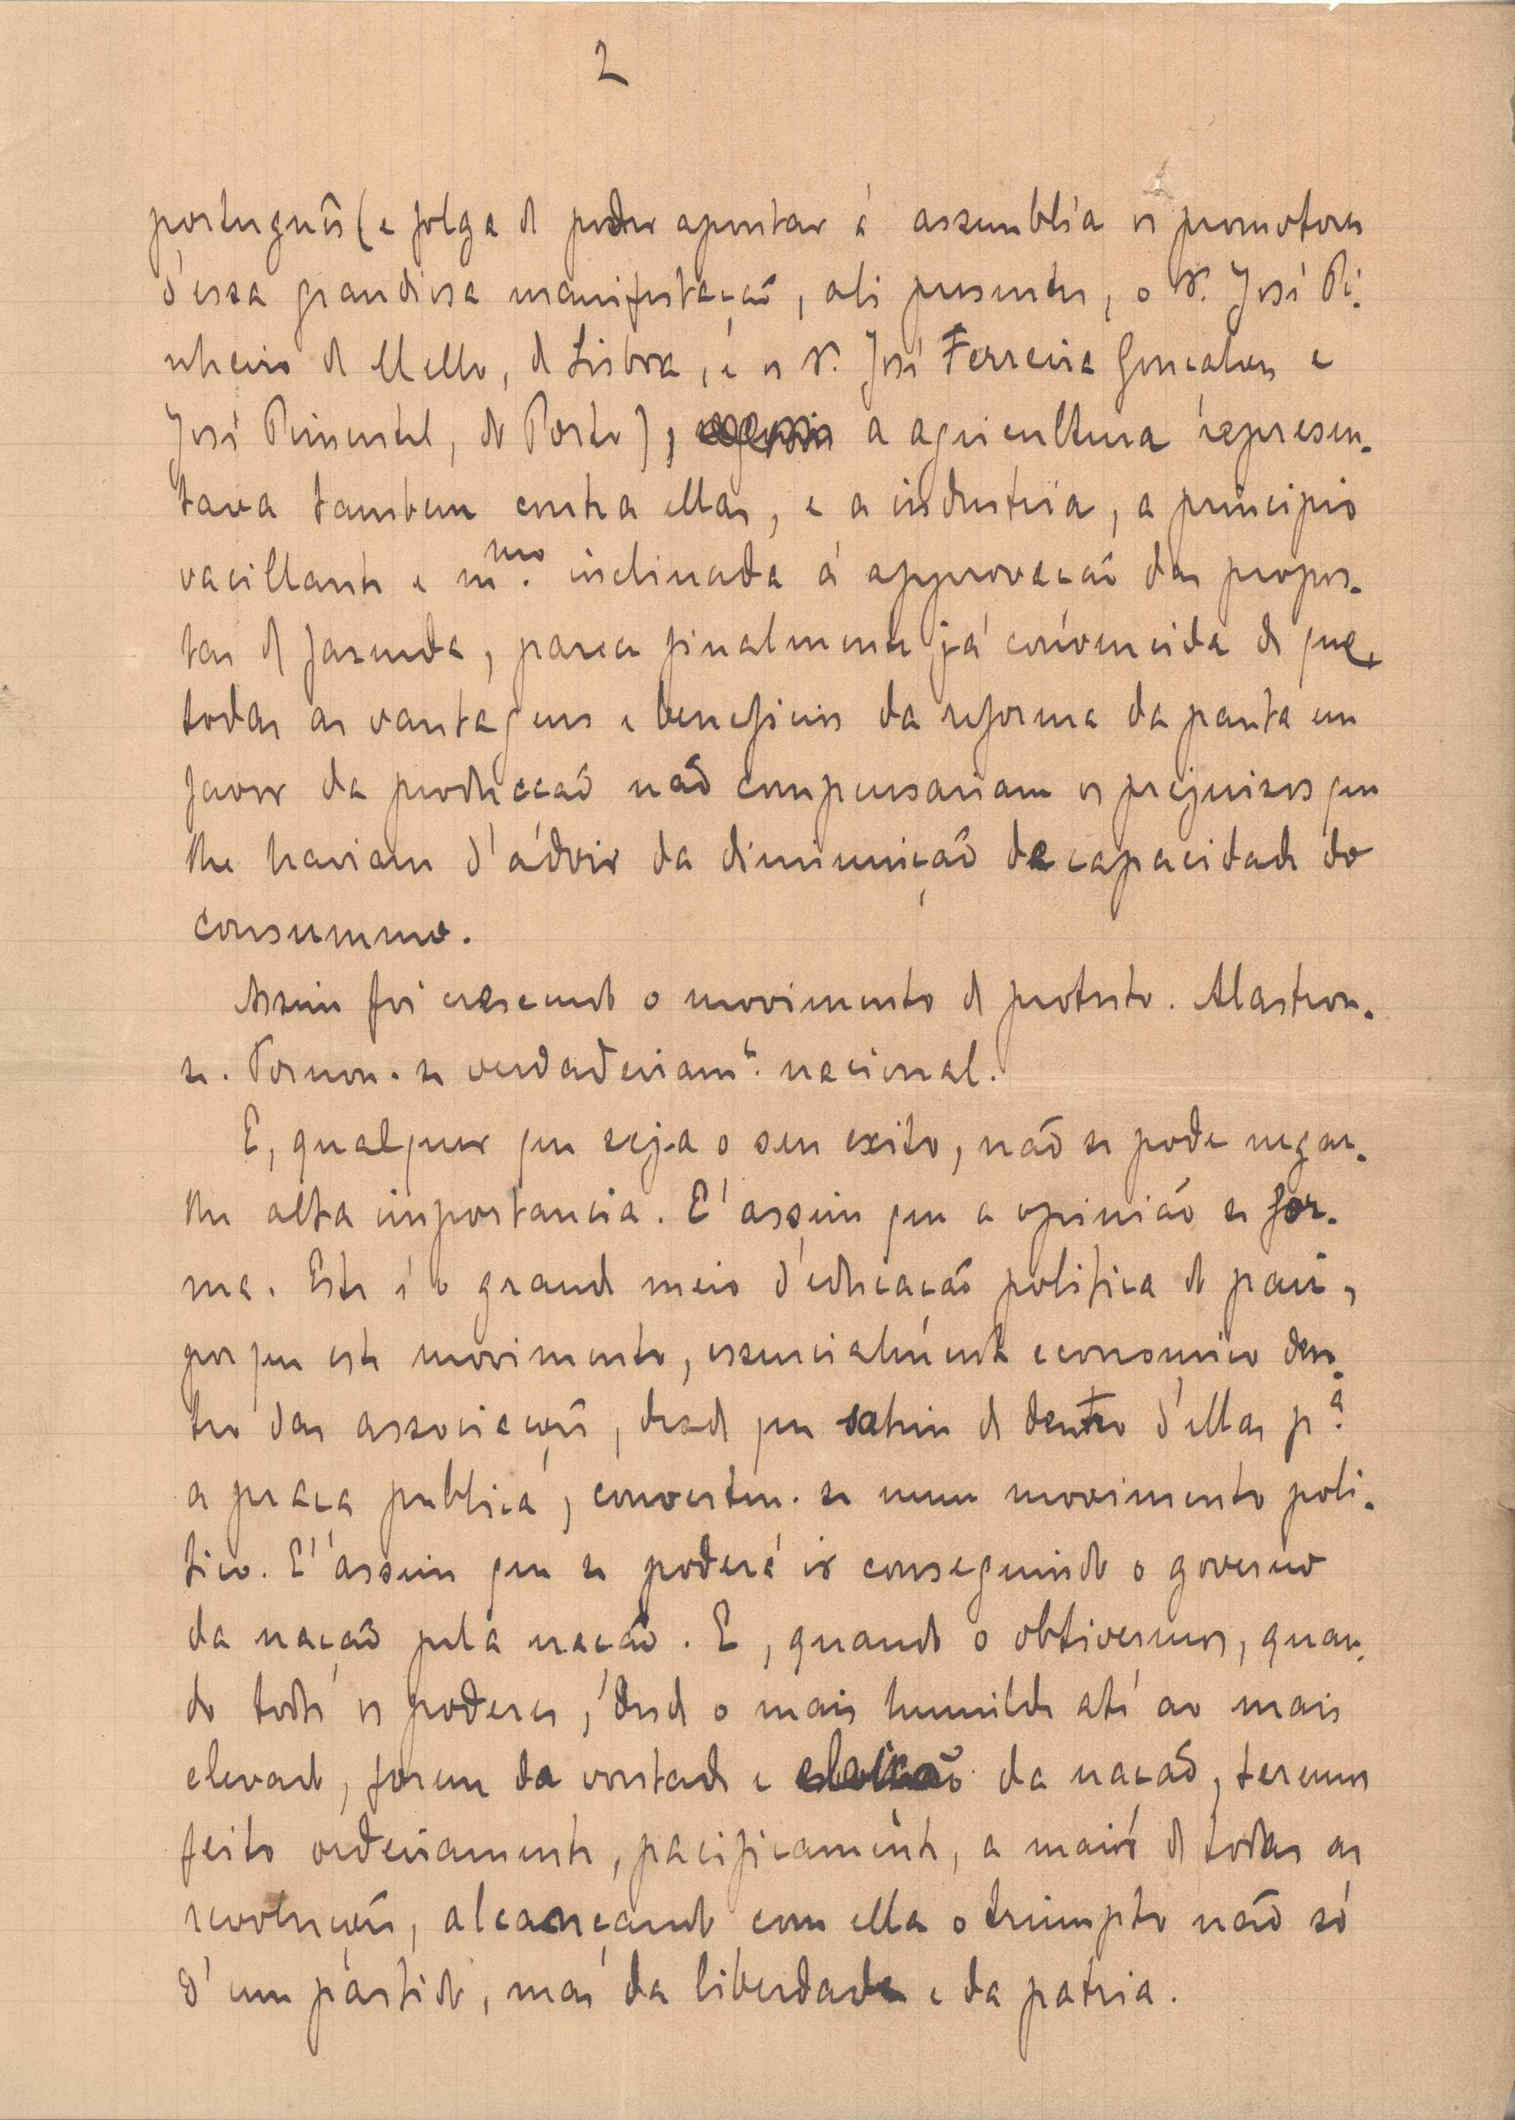 2
português (e folga de poder apontar á assembléa os promotores
d'essa grandiosa manifestação, ali presentes, o sr. José Pi-
nheiro de Mello, de Lisboa, e os srs. José Ferreira Gonçalves e
José Pimentel, do Porto), a agricultura represen-
tava tambem contra ellas, e a industria, a principio
vacillante e mmo. inclinada á approvação das propos-
tas de fazenda, parece finalmente já convencida de que
todas as vantagens e beneficios da reforma da pauta em
favor da protecção não compensariam os prejuisos que
lhe haviam d'advir da diminuição da capacidade do
consummo.
Assim foi crescendo o movimento de protesto. Alastrou-
se. Tornou-se verdadeiramte. nacional.
E, qualquer que seja o seu exito, não se pode negar-
lhe alta importancia. E' assim que a opinião se for-
ma. Este é o grande meio d'educação politica do paiz,
porque este movimento, essencialmente economico den-
tro das associações, desde que sahiu de dentro d'ellas pa.
a praça publica, converteu-se num movimento poli-
tico. E' assim que se poderá ir conseguindo o governo
da nação pela nação. E, quando o obtivermos, quan-
do todos os poderes, desde o mais humilde até ao mais
elevado, forem da vontade e eleição da nação, teremos
feito ordeiramente, pacificamente, a maior de todas as
revoluções, alcançando com ella o triumpho não só
d'um partido, mas da liberdade e da patria.